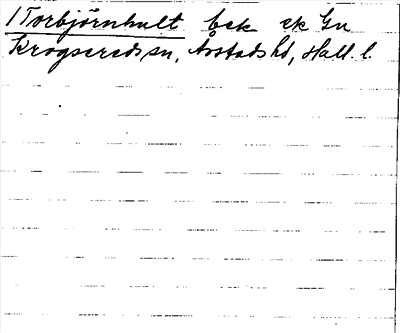 1 Torbjörnhult bek ek Gn
Krogseredssn, Årstads hd, Hall. l.